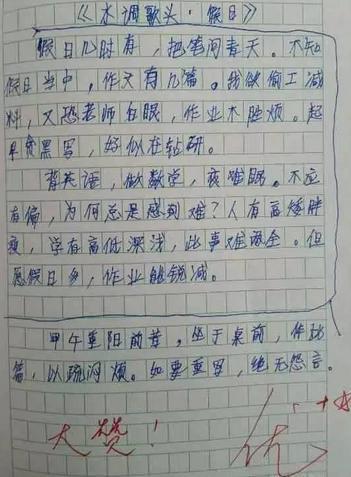 《水调歌头·假日》
假日几时有，把笔问春天。不知
假日当中，作文有几篇。我欲偷工减
料，又恐老师白眼，作业不胜烦。起
早贪黑写，好似在钻研。
背英语，做数学，夜难眠。不应
有偏，为何总是感到难？人有高矮胖
瘦，学有高低深浅，此事难两全。但
愿假日多，作业能锐减。
甲午重阳前昔，坐于桌前，作此
篇，以疏闷烦。如要重写，绝无怨言。
大赞！
优